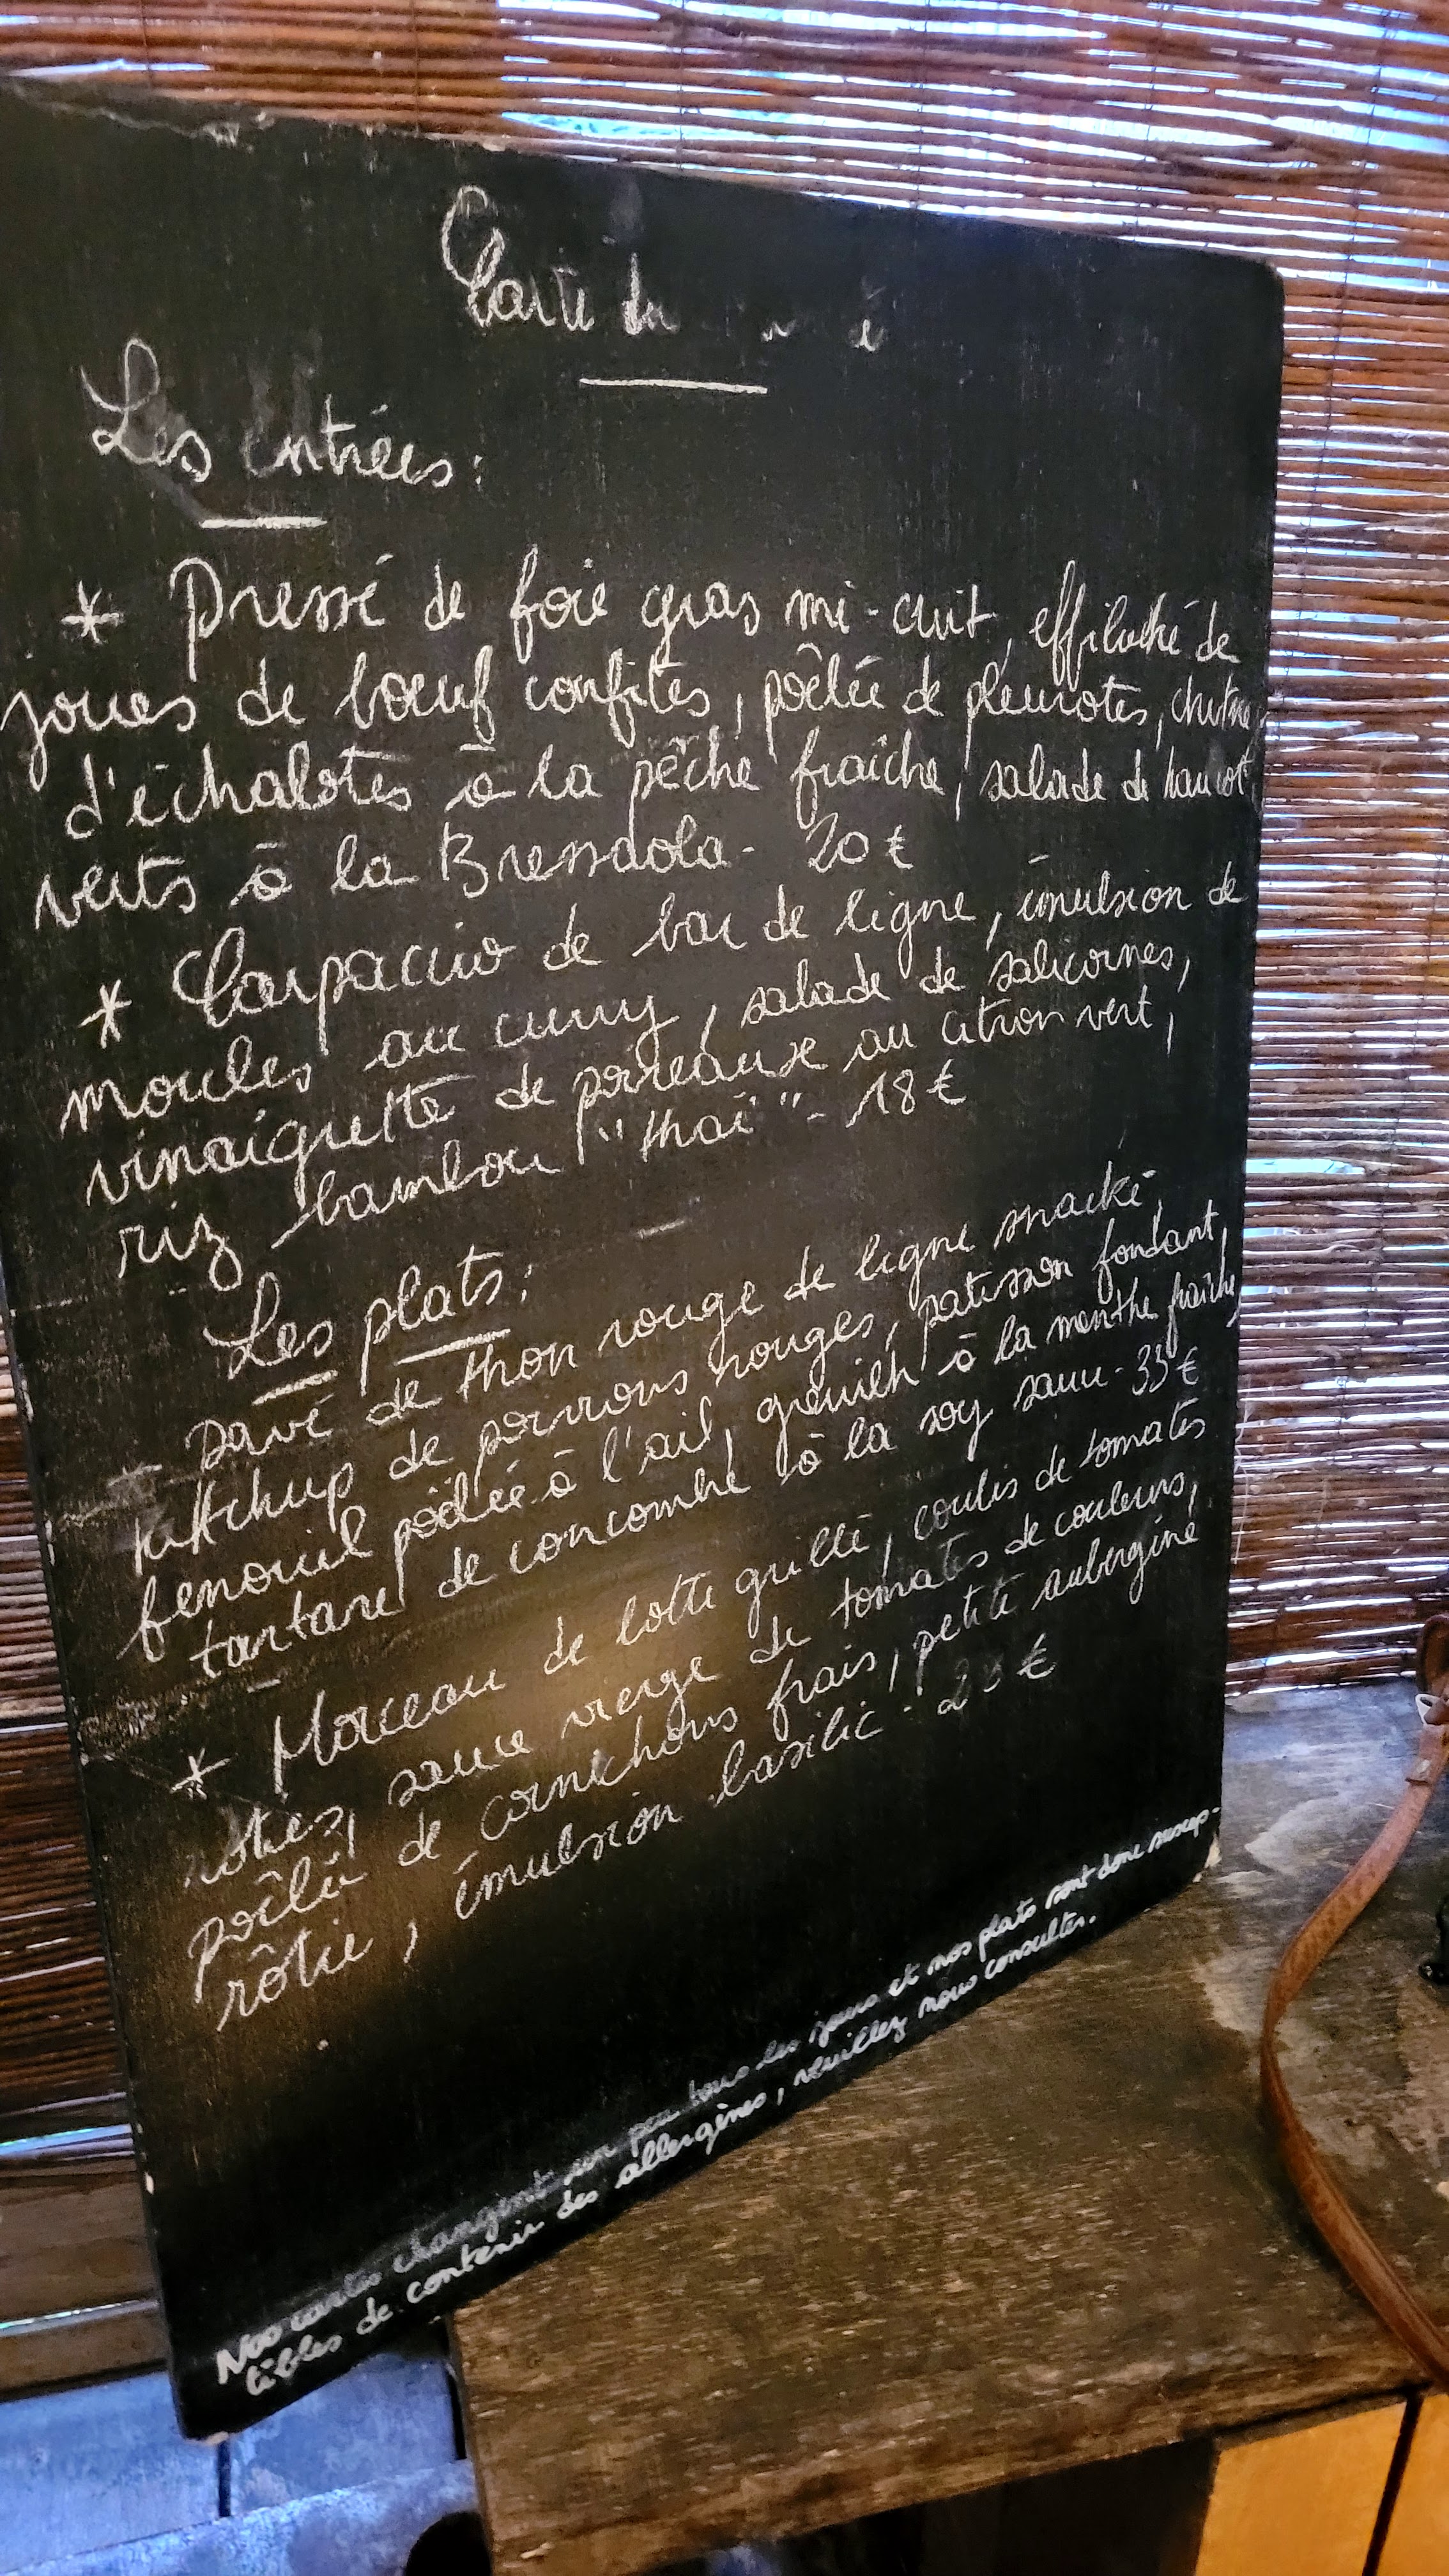 Carte du
Les entrées:
* Pressé de foie gras mi-cuit, effiloché de
joues de bœuf confites, poêlée de pleurotes, chutney
d'échalotes à la pêche fraîche, salade de haricots
verts à la Bressdola - 20 €
* Carpaccio de bar de ligne, émulsion de
moules au curry, salade de salicornes,
vinaigrette de poireaux au citron vert,
riz bambou "thaï" - 18 €
Les plats:
- Pavé de thon rouge de ligne snacké,
ketchup de poivrons rouges, patisson fondant,
fenouil poêlée à l'ail, à la menthe fraîche,
tartare de concombre à la soy sauce - 33 €
* Morceau de lotte grillé, coulis de tomates
rôties, sauce vierge de tomates de couleurs,
poêlée de cornichons frais, petite aubergine
rôtie, émulsion basilic - €
Nos cartes changent un peu tous les jours et nos plats sont donc suscep-
tibles de contenir des allergènes, veuillez nous consulter.